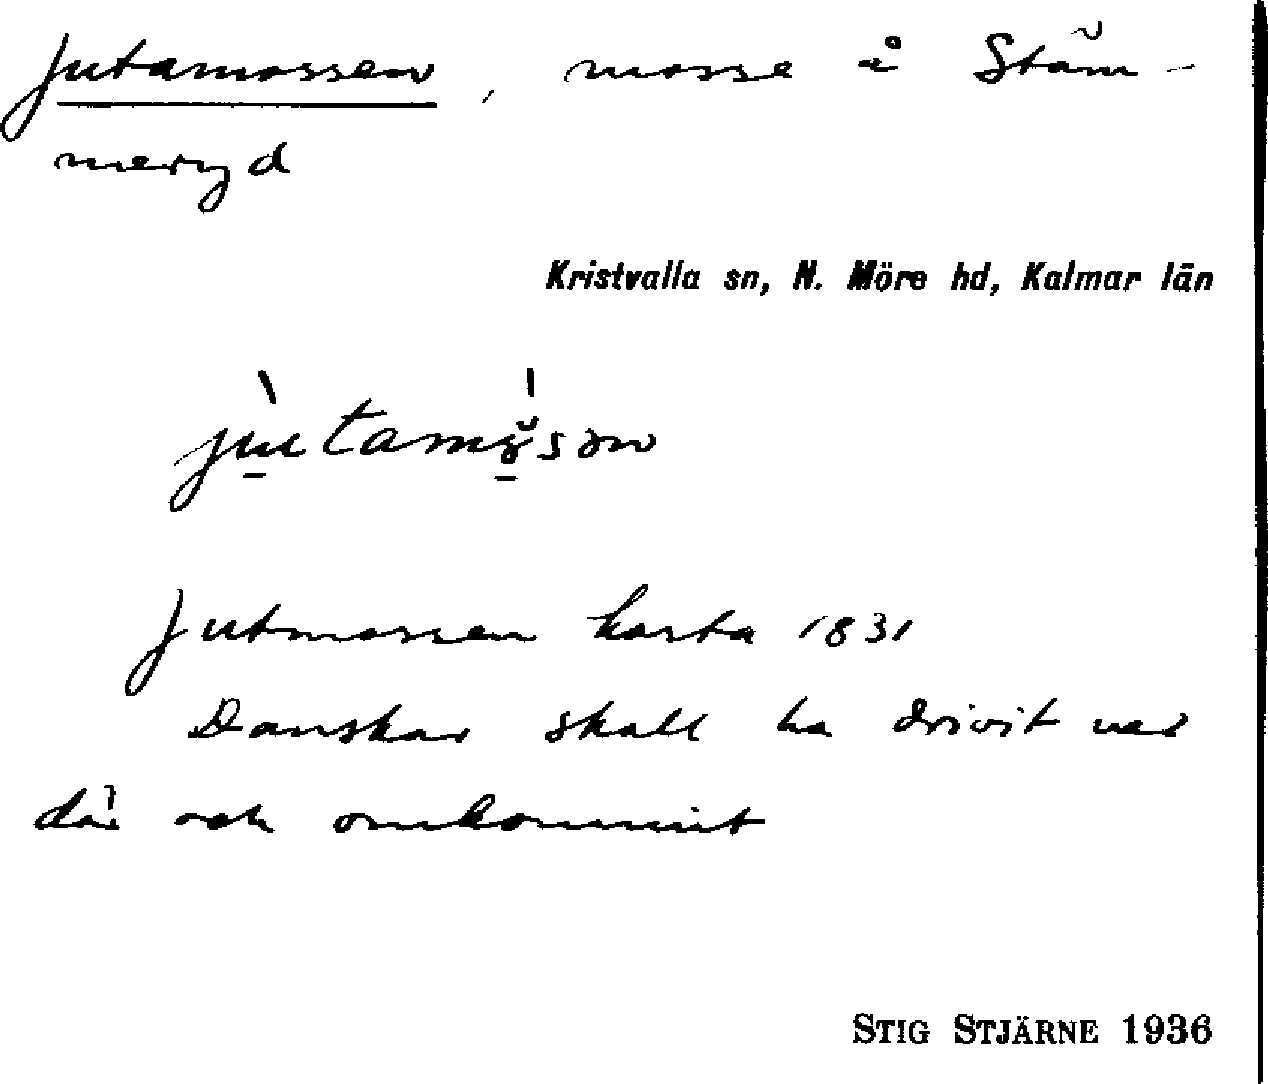 Jutamossen, mosse å Stäm-
meryd
Kristvalla sn, N. Möre hd, Kalmar län
Jutmossen karta 1831
Danskar skall ha drivit ner
där och omkommit
STIG STJÄRNE 1936